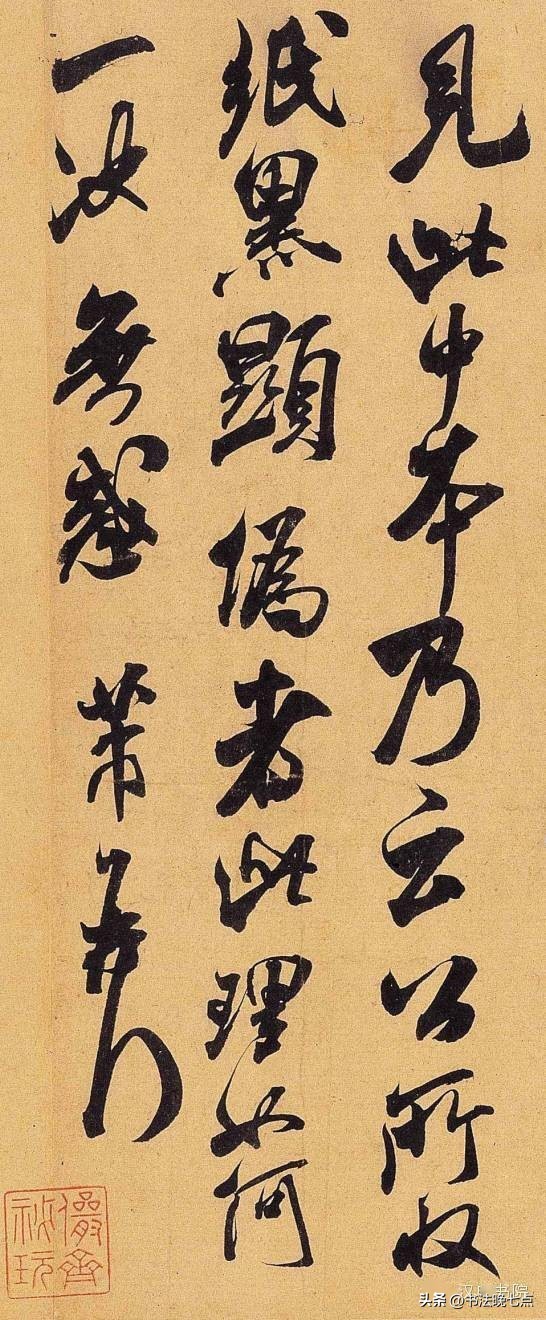 見此中本乃云公所收
紙黑顯偽者此理如何
一決無惑 芾頓首
儼齋
秘玩
头条 @书法晚七点